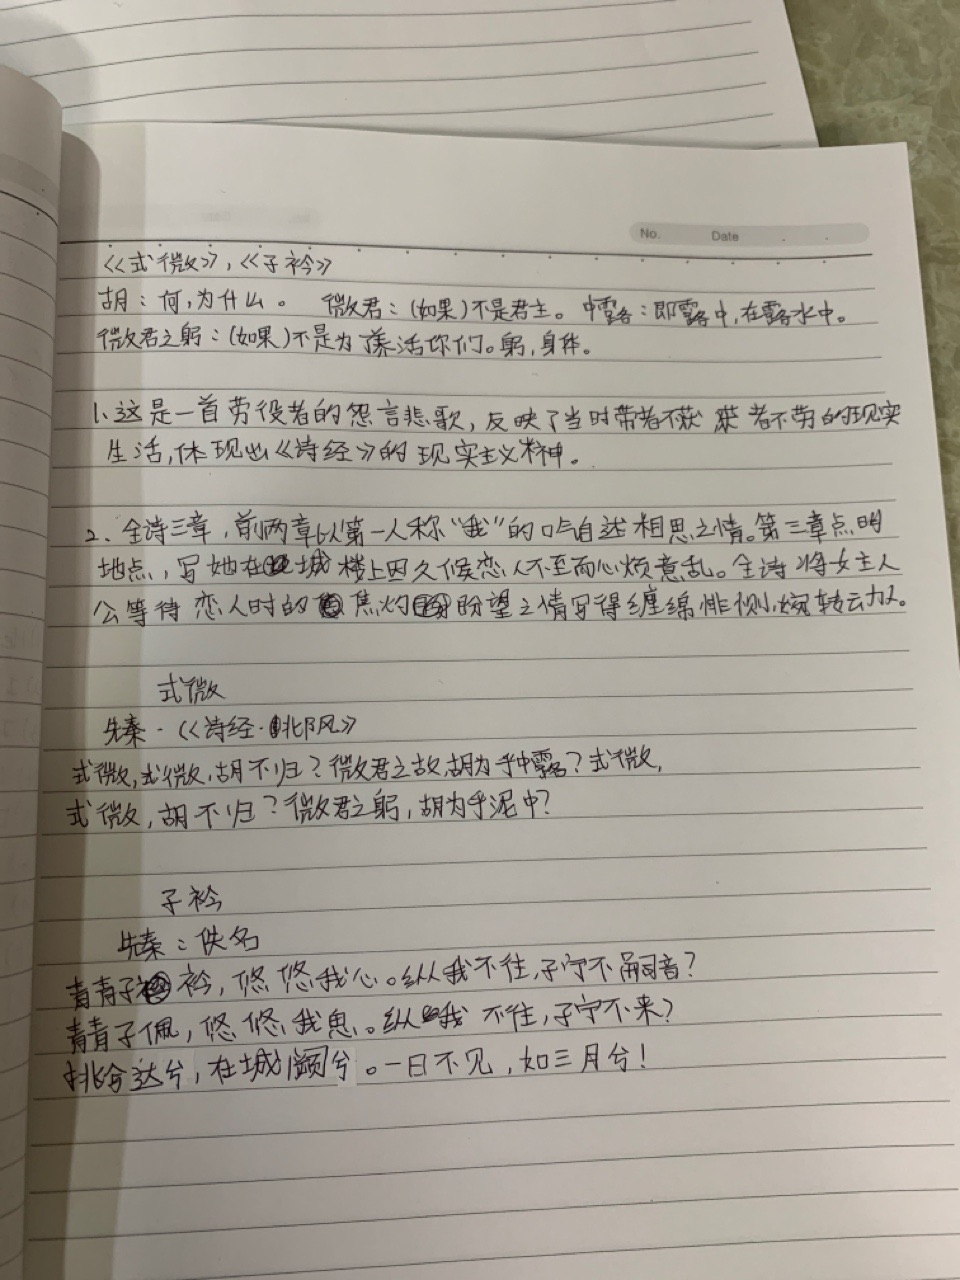 No. Date
《式微》,《子衿》
胡:何,为什么。 微君:(如果)不是君主。中露:即露中,在露水中。
微君之躬:(如果)不是为养活你们。躬,身体。
1.这是一首劳役者的怨言悲歌,反映了当时带者不获 获者不劳的现实
生活,体现出《诗经》的现实主义精神。
2.全诗三章,前两章以第一人称“我”的口气自述相思之情。第三章点明
地点,写她在城楼上因久候恋人不至而心烦意乱。全诗将女主人
公等待恋人时的焦灼盼望之情写得缠绵悱恻,婉转动人。
式微
先秦·《诗经·邶风》
式微,式微,胡不归?微君之故,胡为乎中露?式微,
式微,胡不归?微君之躬,胡为乎泥中?
子衿
先秦:佚名
青青子衿,悠悠我心。纵我不往,子宁不嗣音?
青青子佩,悠悠我思。纵我不往,子宁不来?
挑兮达兮,在城阙兮。一日不见,如三月兮!